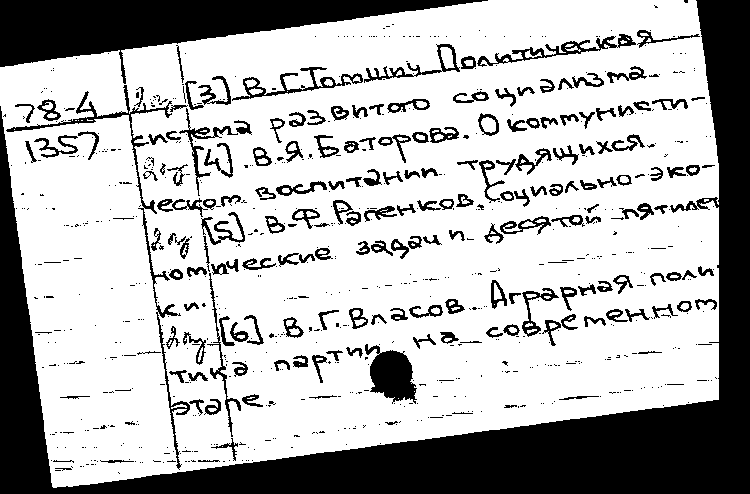 78-4
1357
2 оз [3] В.Г.Томшич Политическая
система развитого социализма.
2 оз [4]. В.Я.Баторова. О коммунисти-
ческом воспитании трудящихся.
2 оз [5]. В.Ф. Рапенков. Социально-эко-
номические задачи десятой пятилет
ки.
2 оз [6]. В.Г. Власов. Аграрная поли-
тика партии на современном
этапе.